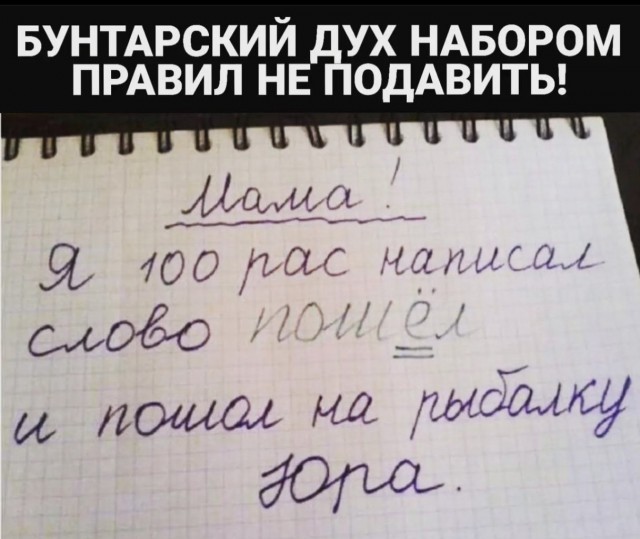 БУНТАРСКИЙ ДУХ НАБОРОМ
ПРАВИЛ НЕ ПОДАВИТЬ!
Мама!
Я 100 рас написал
слово пошёл
и пошол на рыбалку
Юра.